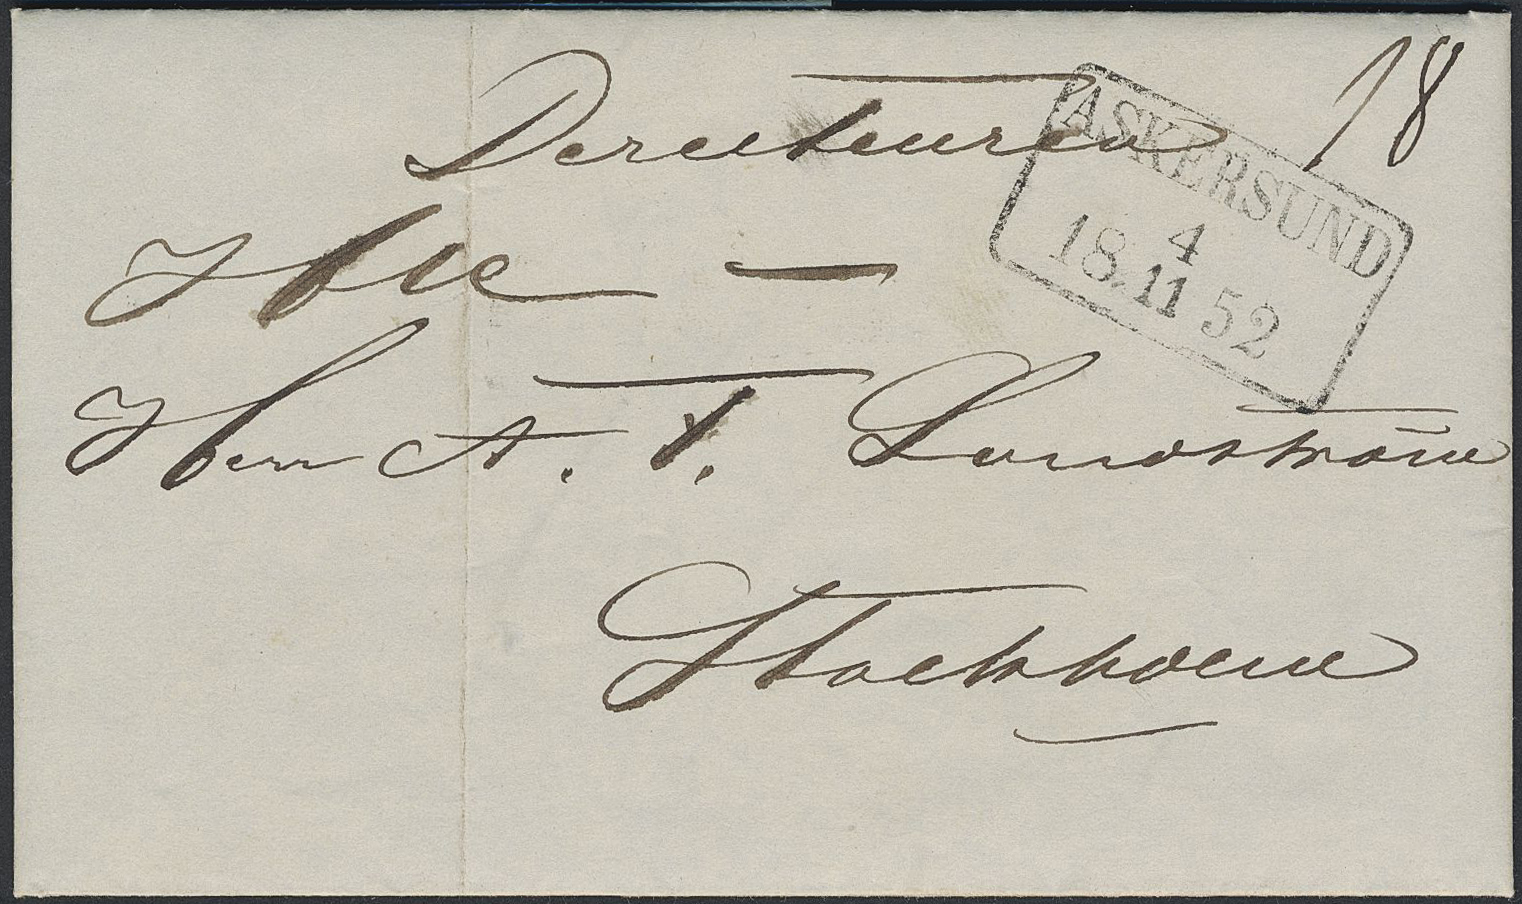 Directeuren 18
ASKERSUND
4
18 11 52
Herr A. T. Lundström
Stockholm